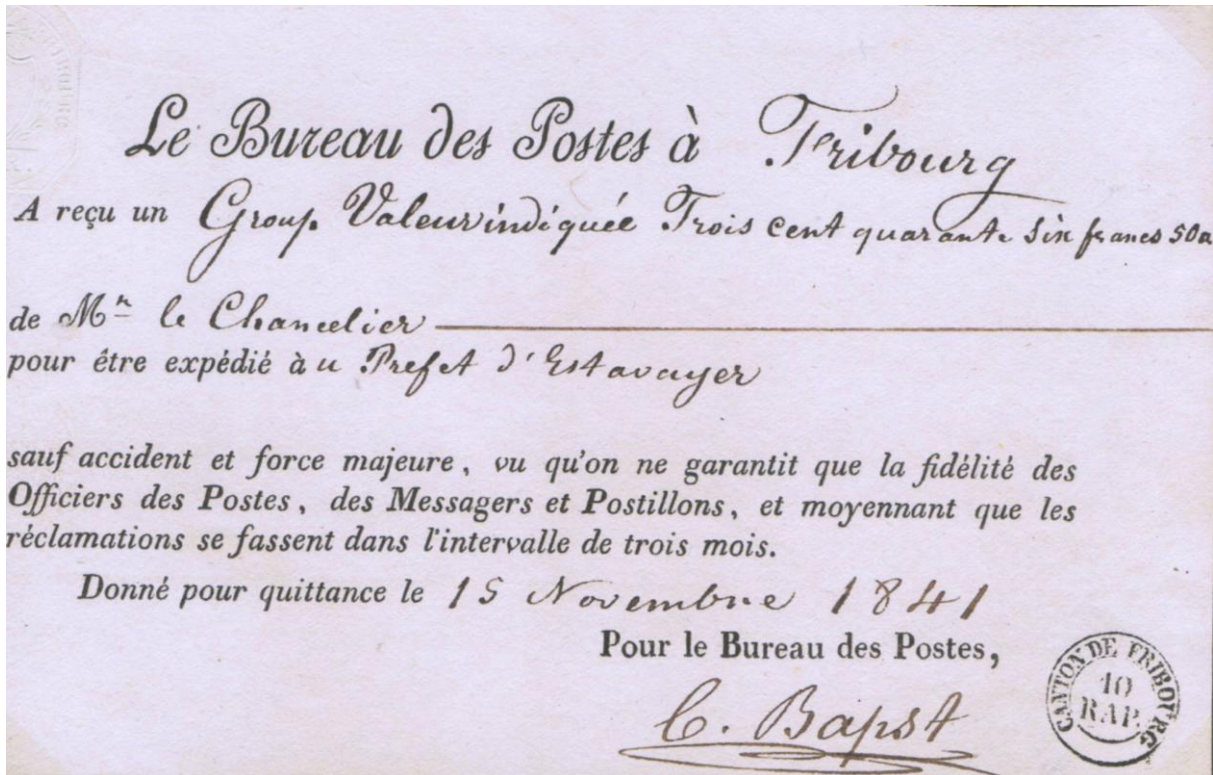 Le Bureau des Postes à Fribourg
A reçu un Group. Valeur indiquée Trois cent quarante six francs 50
de Mr le Chancelier
pour être expédié au Prefet d'Estavayer
sauf accident et force majeure, vu qu'on ne garantit que la fidélité des
Officiers des Postes, des Messagers et Postillons, et moyennant que les
réclamations se fassent dans l'intervalle de trois mois.
Donné pour quittance le 15 Novembre 1841
Pour le Bureau des Postes,
CANTON DE FRIBOURG
10
RAP.
C. Bapst